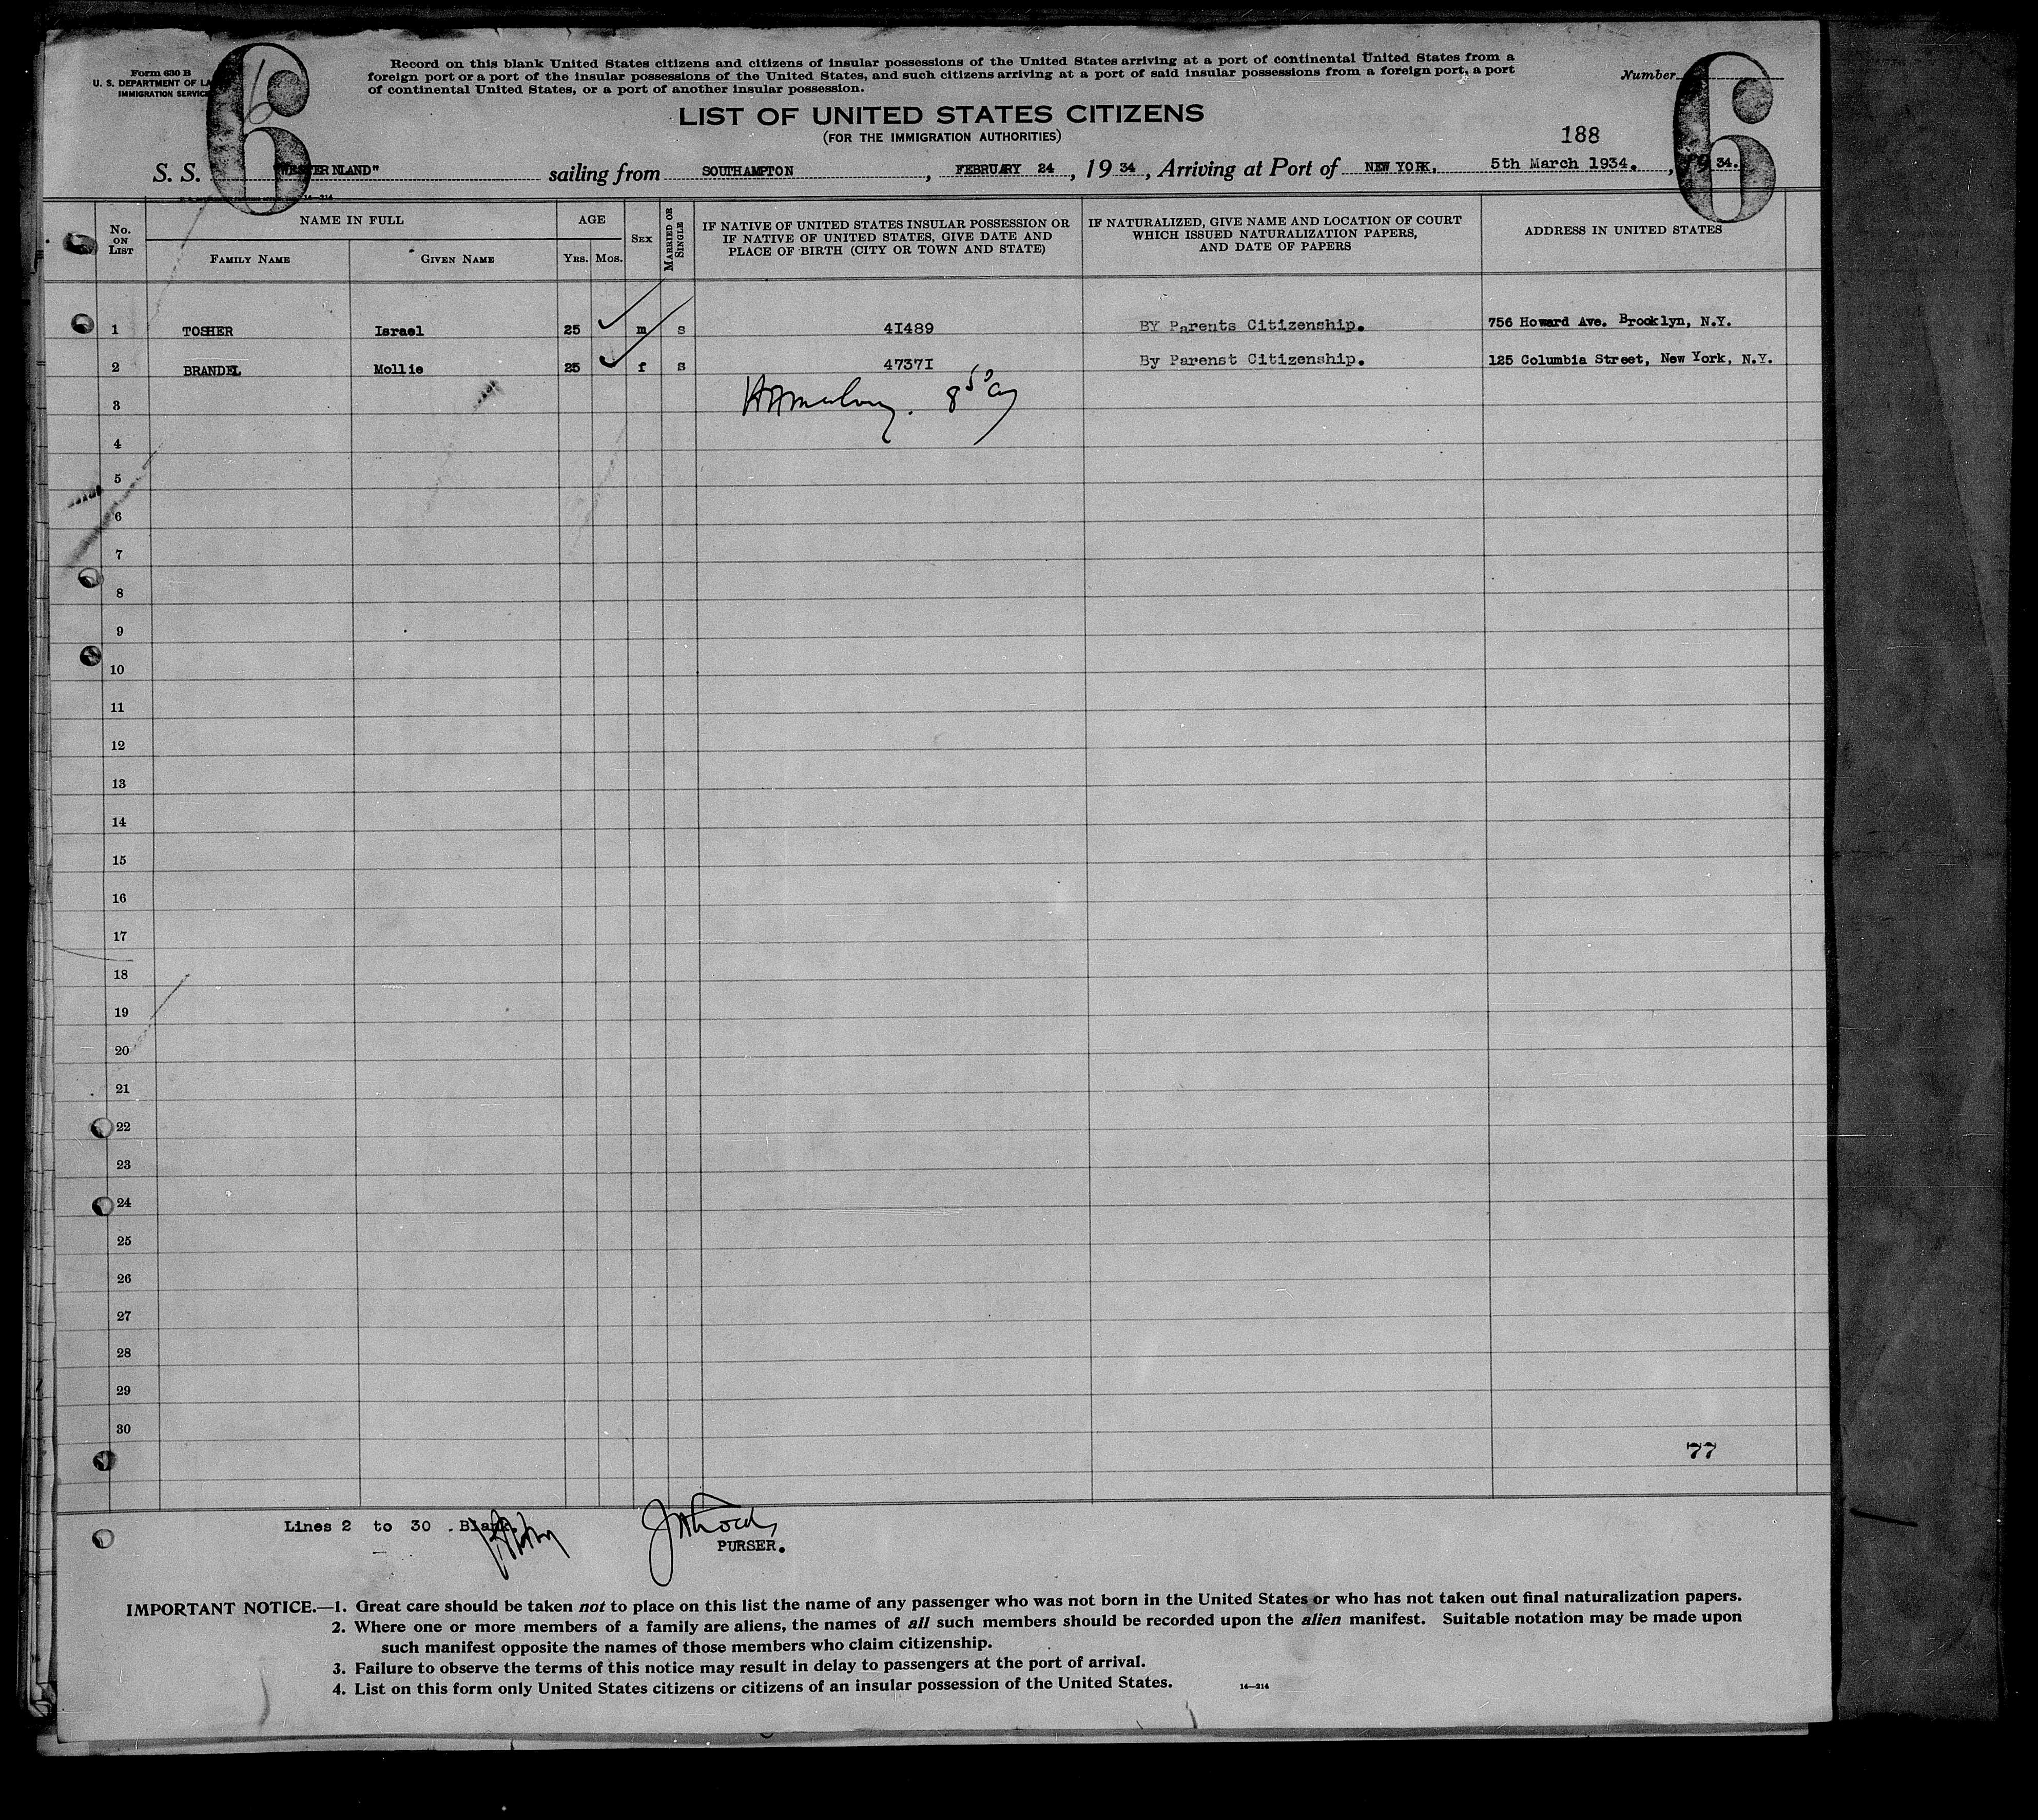 Form 630 B
U. S. DEPARTMENT OF LA
IMMIGRATION SERVICE
6
Record on this blank United States citizens and citizens of insular possessions of the United States arriving at a port of continental United States from a
foreign port or a port of the insular possessions of the United States, and such citizens arriving at a port of said insular possessions from a foreign port, a port
of continental United States, or a port of another insular possession.
Number
6
LIST OF UNITED STATES CITIZENS
(FOR THE IMMIGRATION AUTHORITIES)
188
S. S. "WESTERNLAND" sailing from SOUTHAMPTON, FEBRUARY 24, 1934, Arriving at Port of NEW YORK, 5th March 1934., 1934.
No. ON LIST
NAME IN FULL
FAMILY NAME
GIVEN NAME
AGE
YRS. MOS.
SEX
MARRIED OR SINGLE
IF NATIVE OF UNITED STATES INSULAR POSSESSION OR
IF NATIVE OF UNITED STATES, GIVE DATE AND
PLACE OF BIRTH (CITY OR TOWN AND STATE)
IF NATURALIZED, GIVE NAME AND LOCATION OF COURT
WHICH ISSUED NATURALIZATION PAPERS,
AND DATE OF PAPERS
ADDRESS IN UNITED STATES
1 TOSHER Israel 25 m s 4I489 BY Parents Citizenship. 756 Howard Ave. Brooklyn, N.Y.
2 BRANDEL Mollie 25 f s 4737I By Parenst Citizenship. 125 Columbia Street, New York, N.Y.
3
4
5
6
7
8
9
10
11
12
13
14
15
16
17
18
19
20
21
22
23
24
25
26
27
28
29
30
77
Lines 2 to 30 . Blank.
PURSER.
IMPORTANT NOTICE.—1. Great care should be taken not to place on this list the name of any passenger who was not born in the United States or who has not taken out final naturalization papers.
2. Where one or more members of a family are aliens, the names of all such members should be recorded upon the alien manifest. Suitable notation may be made upon
such manifest opposite the names of those members who claim citizenship.
3. Failure to observe the terms of this notice may result in delay to passengers at the port of arrival.
4. List on this form only United States citizens or citizens of an insular possession of the United States.
14—214